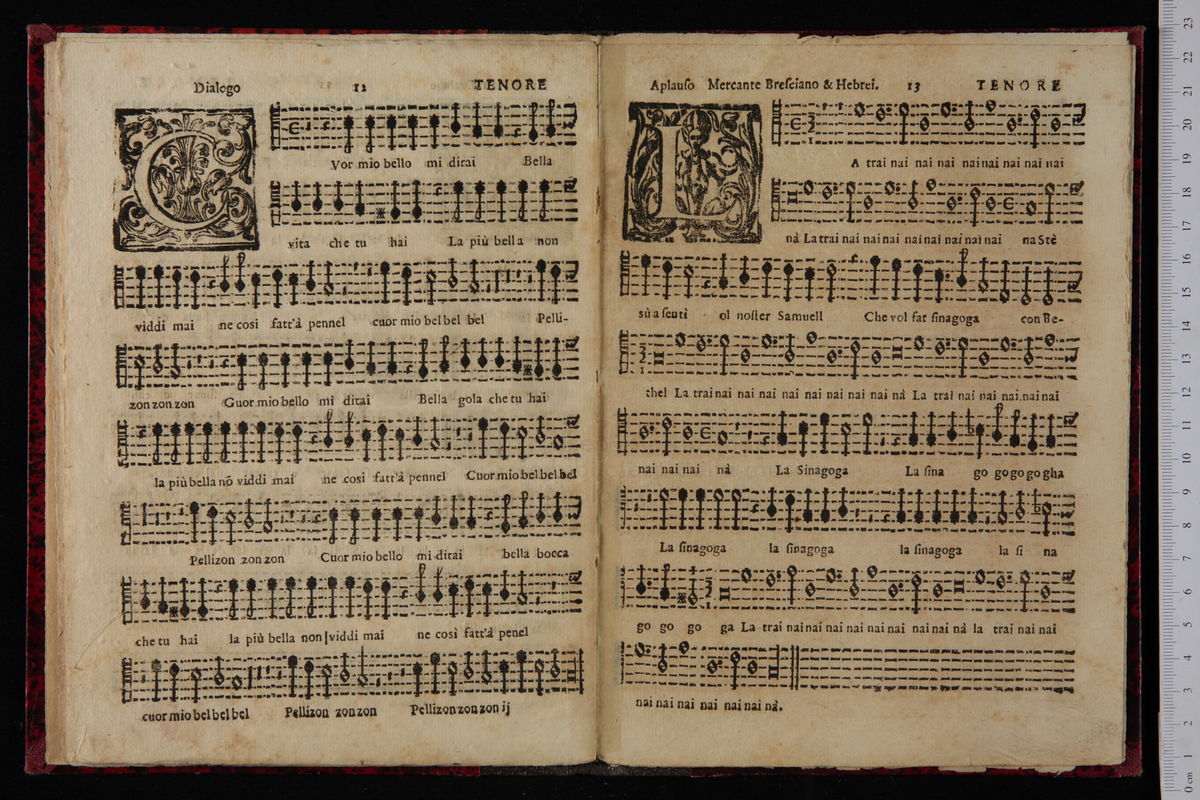 Dialogo 12 TENORE
CVor mio bello mi dirai Bella
vita che tu hai La più bella non
viddi mai ne cosi fatt'à pennel cuor mio bel bel bel Pelli-
zon zon zon Cuor mio bello mi dirai Bella gola che tu hai
la più bella nō viddi mai ne cosi fatt'à pennel Cuor mio bel bel bel
Pellizon zon zon Cuor mio bello mi dirai bella bocca
che tu hai la più bella non viddi mai ne così fatt'à penel
cuor mio bel bel bel Pellizon zon zon Pellizon zon zon ij
Aplauso Mercante Bresciano & Hebrei. 13 TENORE
LA trai nai nai nai nai nai nai nai nai
nà La trai nai nai nai nai nai nai nai nai na Stè
sù a senti ol noster Samuell Che vol far sinagoga con Be-
thel La trai nai nai nai nai nai nai nai nai nà La trai nai nai nai nai nai
nai nai nai nà La Sinagoga La sina go go go go gha
La sinagoga la sinagoga la sinagoga la si na
go go go ga La trai nai nai nai nai nai nai nai nai nà la trai nai nai
nai nai nai nai nai nai nà.
23
22
21
20
19
18
17
16
15
14
13
12
11
10
9
8
7
6
5
4
3
2
1
0 cm